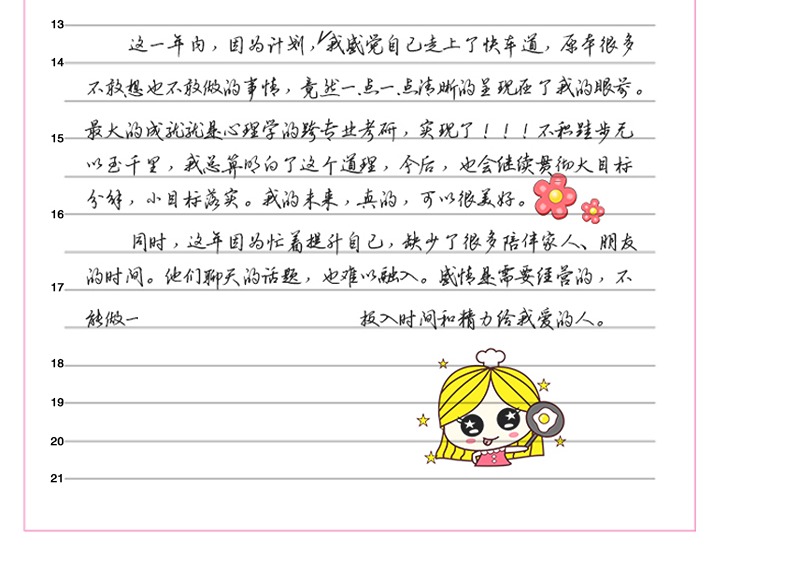 13
这一年内，因为计划，我感觉自己走上了快车道，原本很多
14
不敢想也不敢做的事情，竟然一点一点清晰的呈现在了我的眼前。
最大的成就就是心理学的跨专业考研，实现了！！！不积跬步无
15
以至千里，我总算明白了这个道理，今后，也会继续贯彻大目标
分解，小目标落实。我的未来，真的，可以很美好。
16
同时，这年因为忙着提升自己，缺少了很多陪伴家人、朋友
的时间。他们聊天的话题，也难以融入。感情是需要经营的，不
17
能做一 投入时间和精力给我爱的人。
18
19
20
21